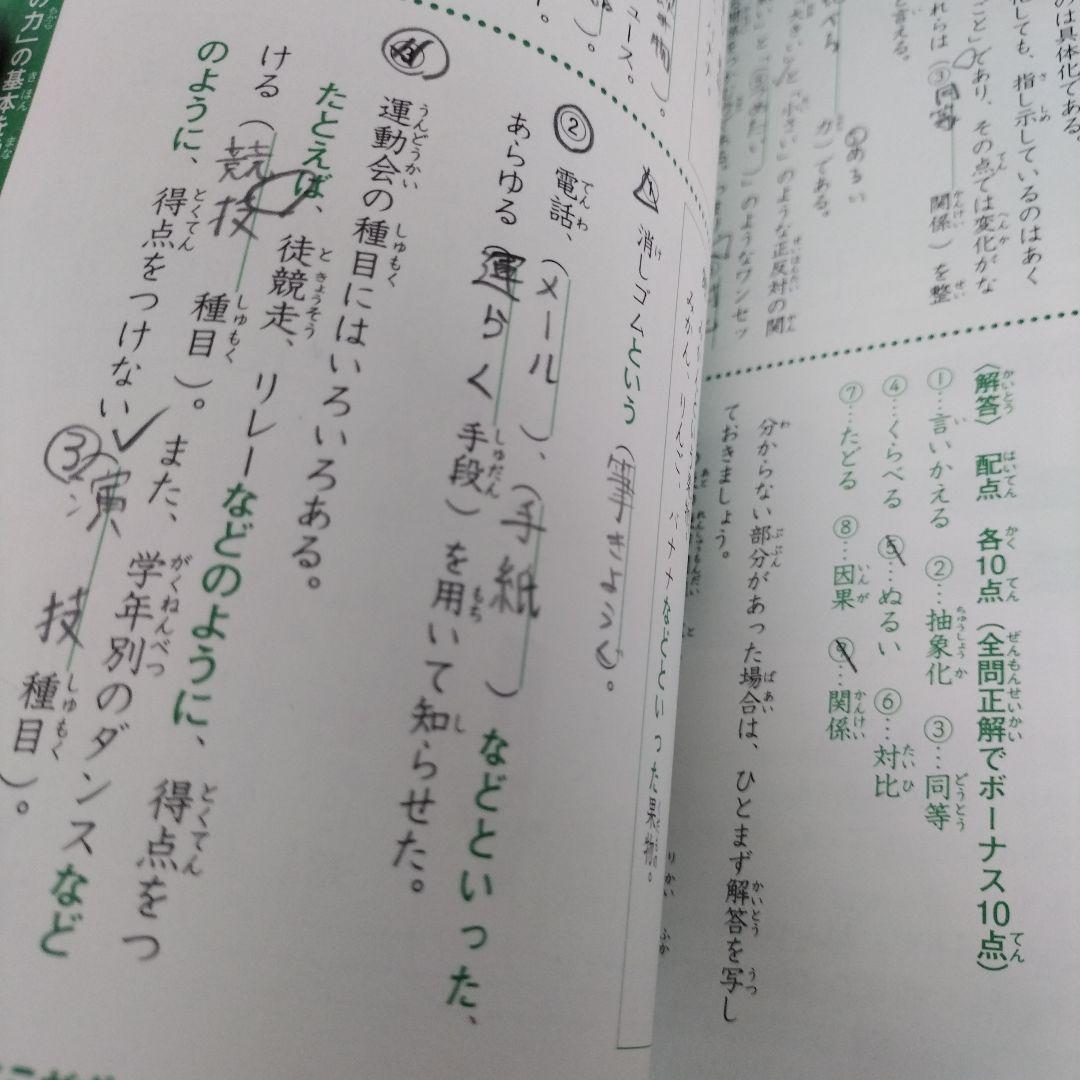 のは具体化である。
化しても、指し示しているのはあく
ごと」であり、その点では変化がな
れらは（③同等 関係）を整
と言える。
①あるい
力）である。
大きい」と「小さい」のような正反対の関
」のようなワンセッ
〈解答〉 配点 各10点（全問正解でボーナス10点）
①…言いかえる ②…抽象化 ③…同等
④…くらべる ⑤…ぬるい ⑥…対比
⑦…たどる ⑧…因果 ⑨…関係
分からない部分があった場合は、ひとまず解答を写し
ておきましょう。
みかん、りんご、バナナなどといった果物。
ュース。
① 消しゴムという（筆きようぐ）。
② 電話、（メール）、（手紙）などといった、
あらゆる（連らく手段）を用いて知らせた。
③ 運動会の種目にはいろいろある。
たとえば、徒競走、リレーなどのように、得点をつ
ける（競技種目）。また、学年別のダンスなど
のように、得点をつけない（演技種目）。
③
の力」の基本を